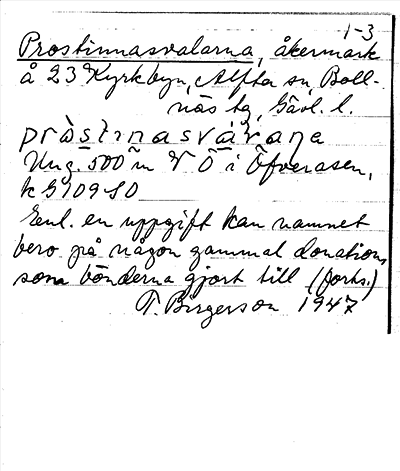 1-3
Prostinnasvalarna, åkermark
å 23 Kyrkbyn, Alfta sn, Boll-
näs tg, Gävl. l.
pràstinasvárana
Ung. 500 m V Ö i Öfverasen,
k 9109 SO
Enl. en uppgift kan namnet
bero på någon gammal donation,
som bönderna gjort till (forts.)
T. Birgerson 1947